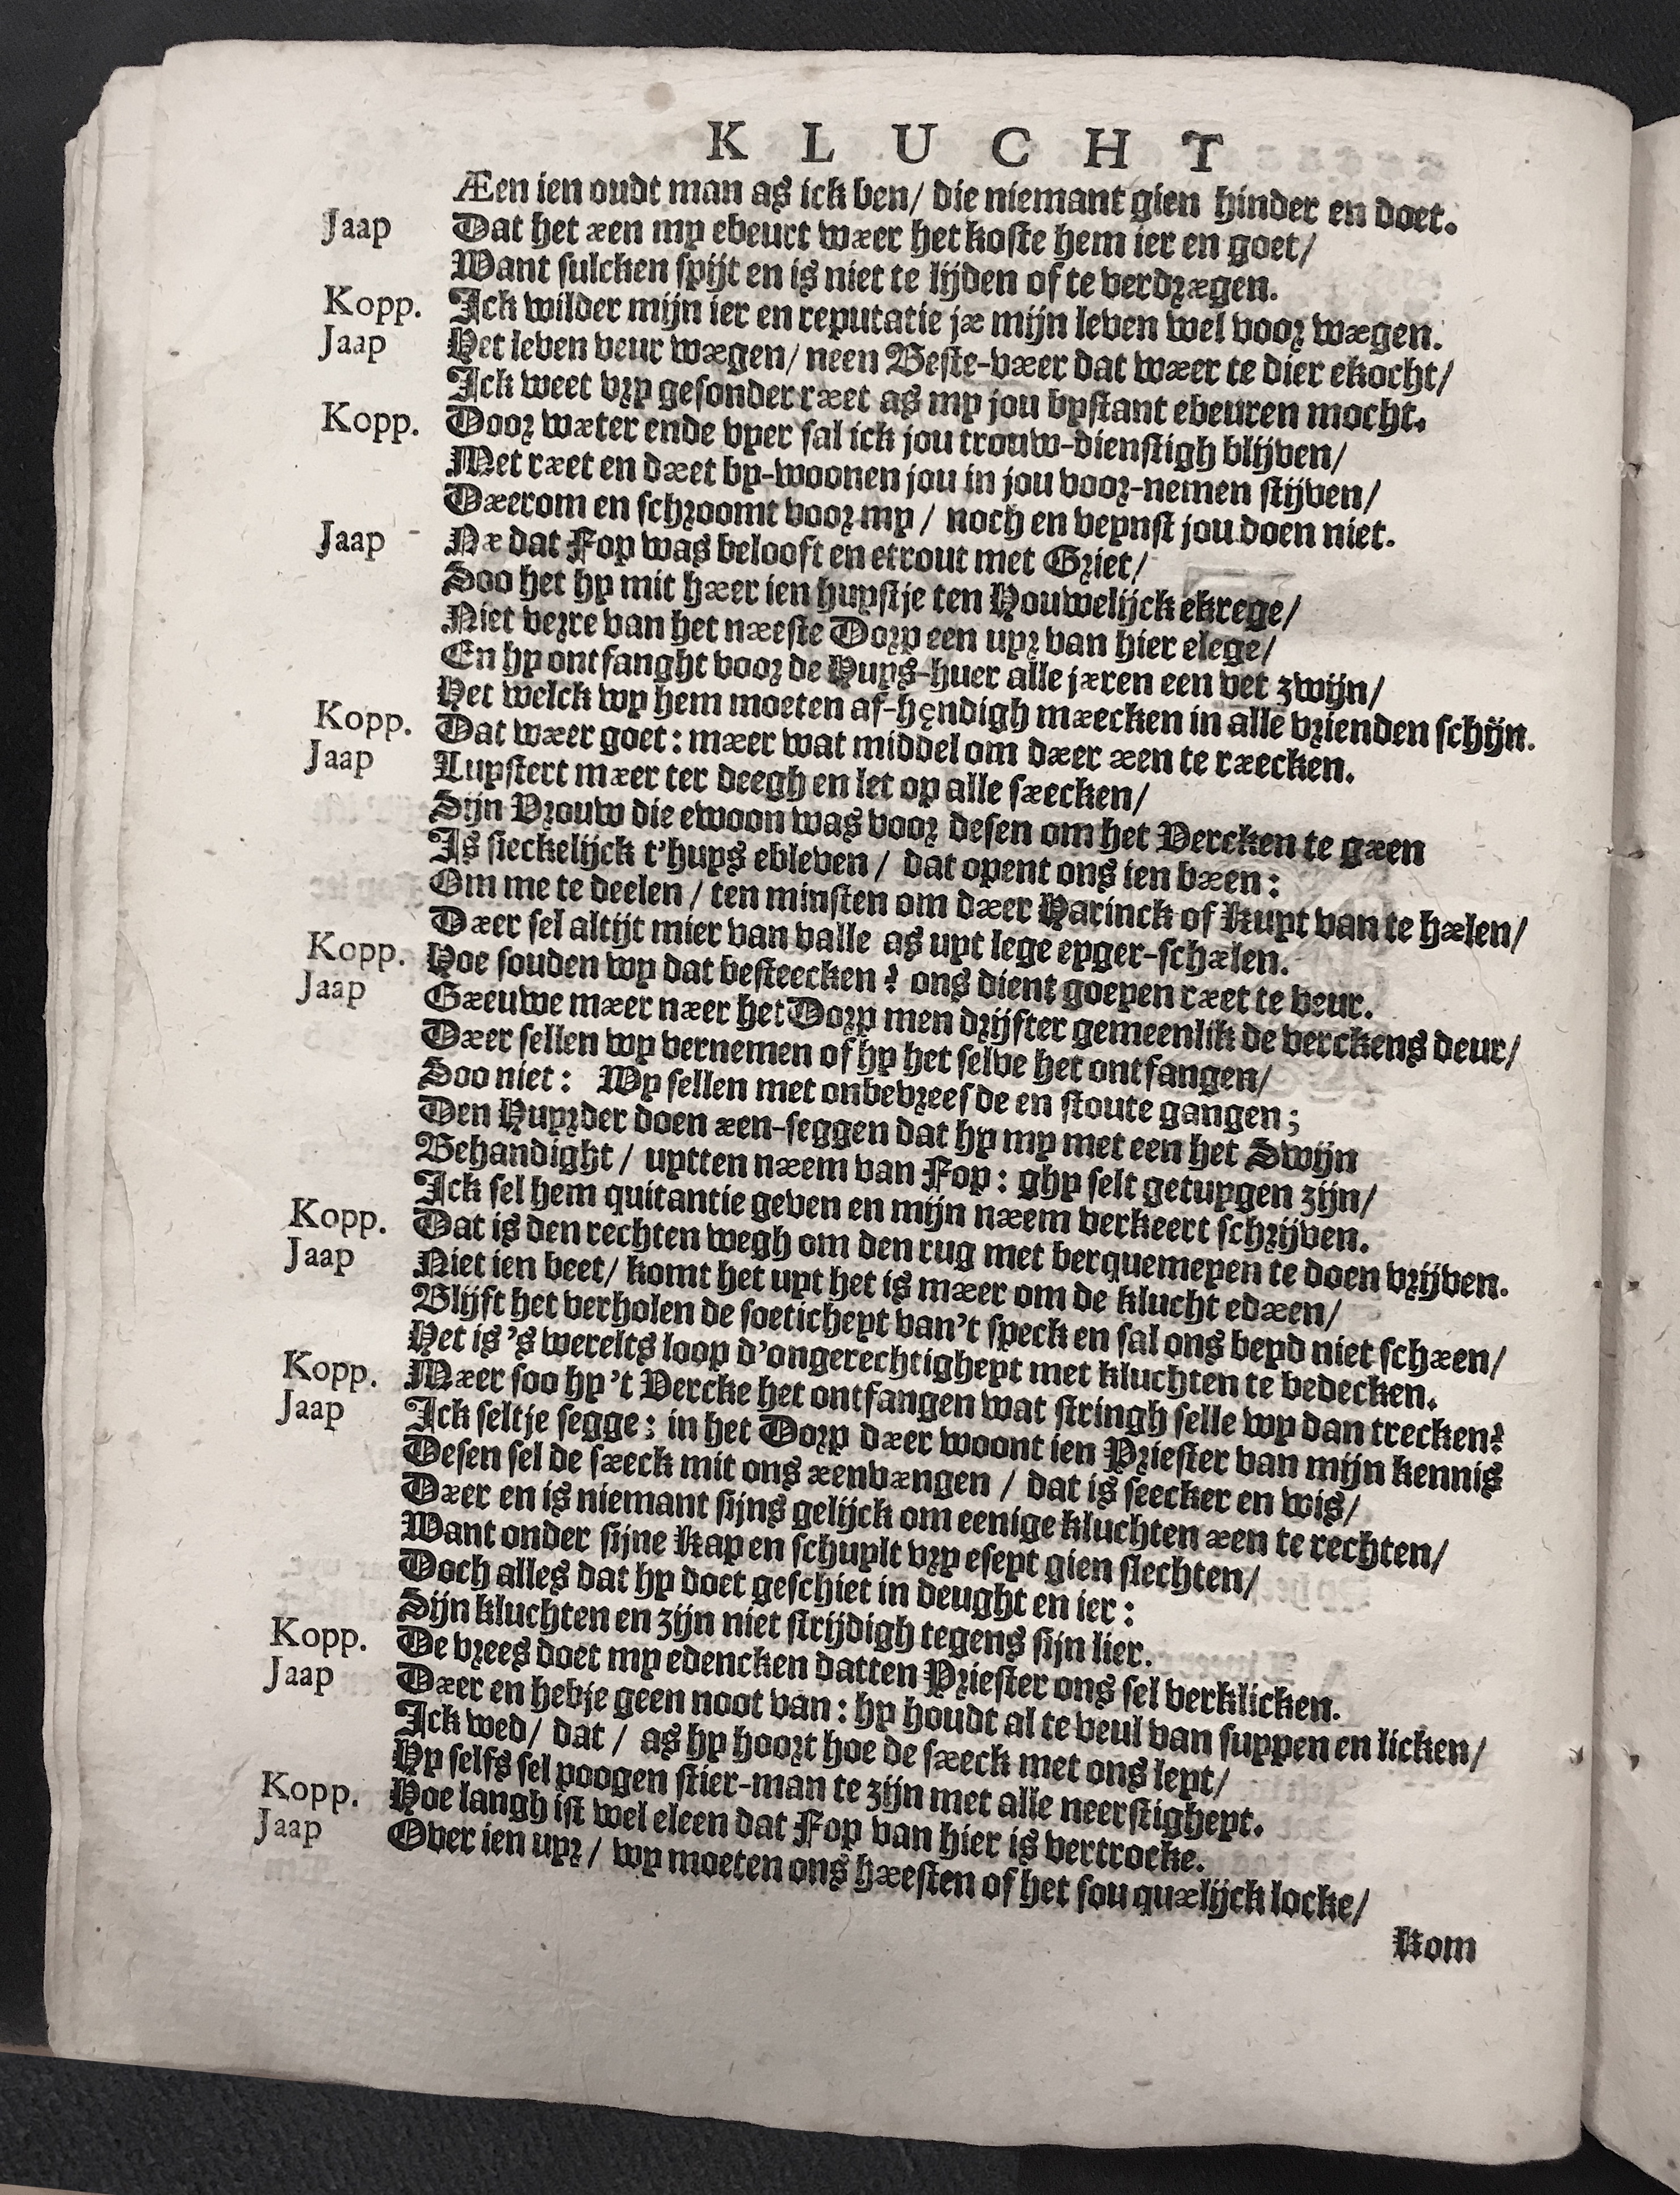 KLUCHT
Æen ien oudt man as ick ben/ die niemant gien hinder en doet.
Jaap Dat het æen my ebeurt wær het koste hem ier en goet/
Want sulcken spijt en is niet te lijden of te verdrægen.
Kopp. Ick wilder mijn ier en reputatie jæ mijn leven wel voor wægen.
Jaap Het leven veur wægen/ neen Beste-væer dat wæer te dier ekocht/
Ick weet vry gesonder ræet as my jou bystant ebeuren mocht.
Kopp. Door wæter ende vyer sal ick jou trouw-dienstigh blijven/
Met ræet en dæet by-woonen jou in jou voor-nemen stijven/
Dæerom en schroomt voor my / noch en veynst jou doen niet.
Jaap Næ dat Fop was belooft en etrout met Griet/
Soo het hy mit hæer ien huystje ten Houwelijck ekrege/
Niet verre van het næeste Dorp een uyr van hier elege/
En hy ontfanght voor de Huys-huer alle jæren een vet zwijn/
Het welck wy hem moeten af-hendigh mæecken in alle vrienden schijn.
Kopp. Dat wæer goet: mæer wat middel om dæer æen te ræecken.
Jaap Luystert mæer ter deegh en let op alle sæecken/
Sijn Vrouw die ewoon was voor desen om het Vercken te gæen
Is sieckelijck t'huys ebleven / dat opent ons ien bæen:
Om me te deelen / ten minsten om dæer Harinck of Kuyt van te hælen/
Dæer sel altijt mier van valle as uyt lege eyger-schælen.
Kopp. Hoe souden wy dat besteecken? ons dient goeyen ræet te veur.
Jaap Gæeuwe mæer næer het Dorp men drijfter gemeenlik de verckens deur/
Dæer sellen wy vernemen of hy het selve het ontfangen/
Soo niet: Wy sellen met onbevreesde en stoute gangen;
Den Huyrder doen æen-seggen dat hy my met een het Swijn
Behandight / uytten næem van Fop: ghy selt getuygen zijn/
Ick sel hem quitantie geven en mijn næem verkeert schrijven.
Kopp. Dat is den rechten wegh om den rug met berquemeyen te doen vrijven.
Jaap Niet ien beet/ komt het uyt het is mæer om de klucht edæen/
Blijft het verholen de soeticheyt van't speck en sal ons beyd niet schæen/
Het is 's werelts loop d'ongerechtigheyt met kluchten te bedecken.
Kopp. Mæer soo hy 't Vercke het ontfangen wat stringh selle wy dan trecken?
Jaap Ick seltje segge; in het Dorp dæer woont ien Priester van mijn kennis
Desen sel de sæeck mit ons æenvængen / dat is seecker en wis/
Dæer en is niemant sijns gelijck om eenige kluchten æen te rechten/
Want onder sijne Kap en schuylt vry eseyt gien slechten/
Doch alles dat hy doet geschiet in deught en ier:
Sijn kluchten en zijn niet strijdigh tegens sijn lier.
Kopp. De vrees doet my edencken datten Priester ons sel verklicken.
Jaap Dæer en hebje geen noot van: hy houdt al te veul van suypen en licken/
Ick wed/ dat / as hy hoort hoe de sæeck met ons leyt/
Hy selfs sel poogen stier-man te zijn met alle neerstigheyt.
Kopp. Hoe langh ist wel eleen dat Fop van hier is vertrocke.
Jaap Over ien uyr / wy moeten ons hæesten of het sou quælijck locke/
Kom